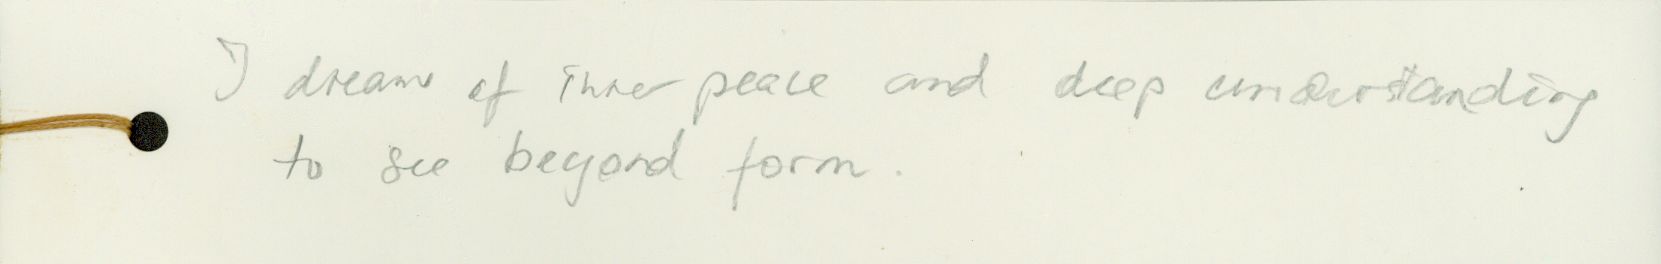 I dream of inner peace and deep understanding
to see beyond form.